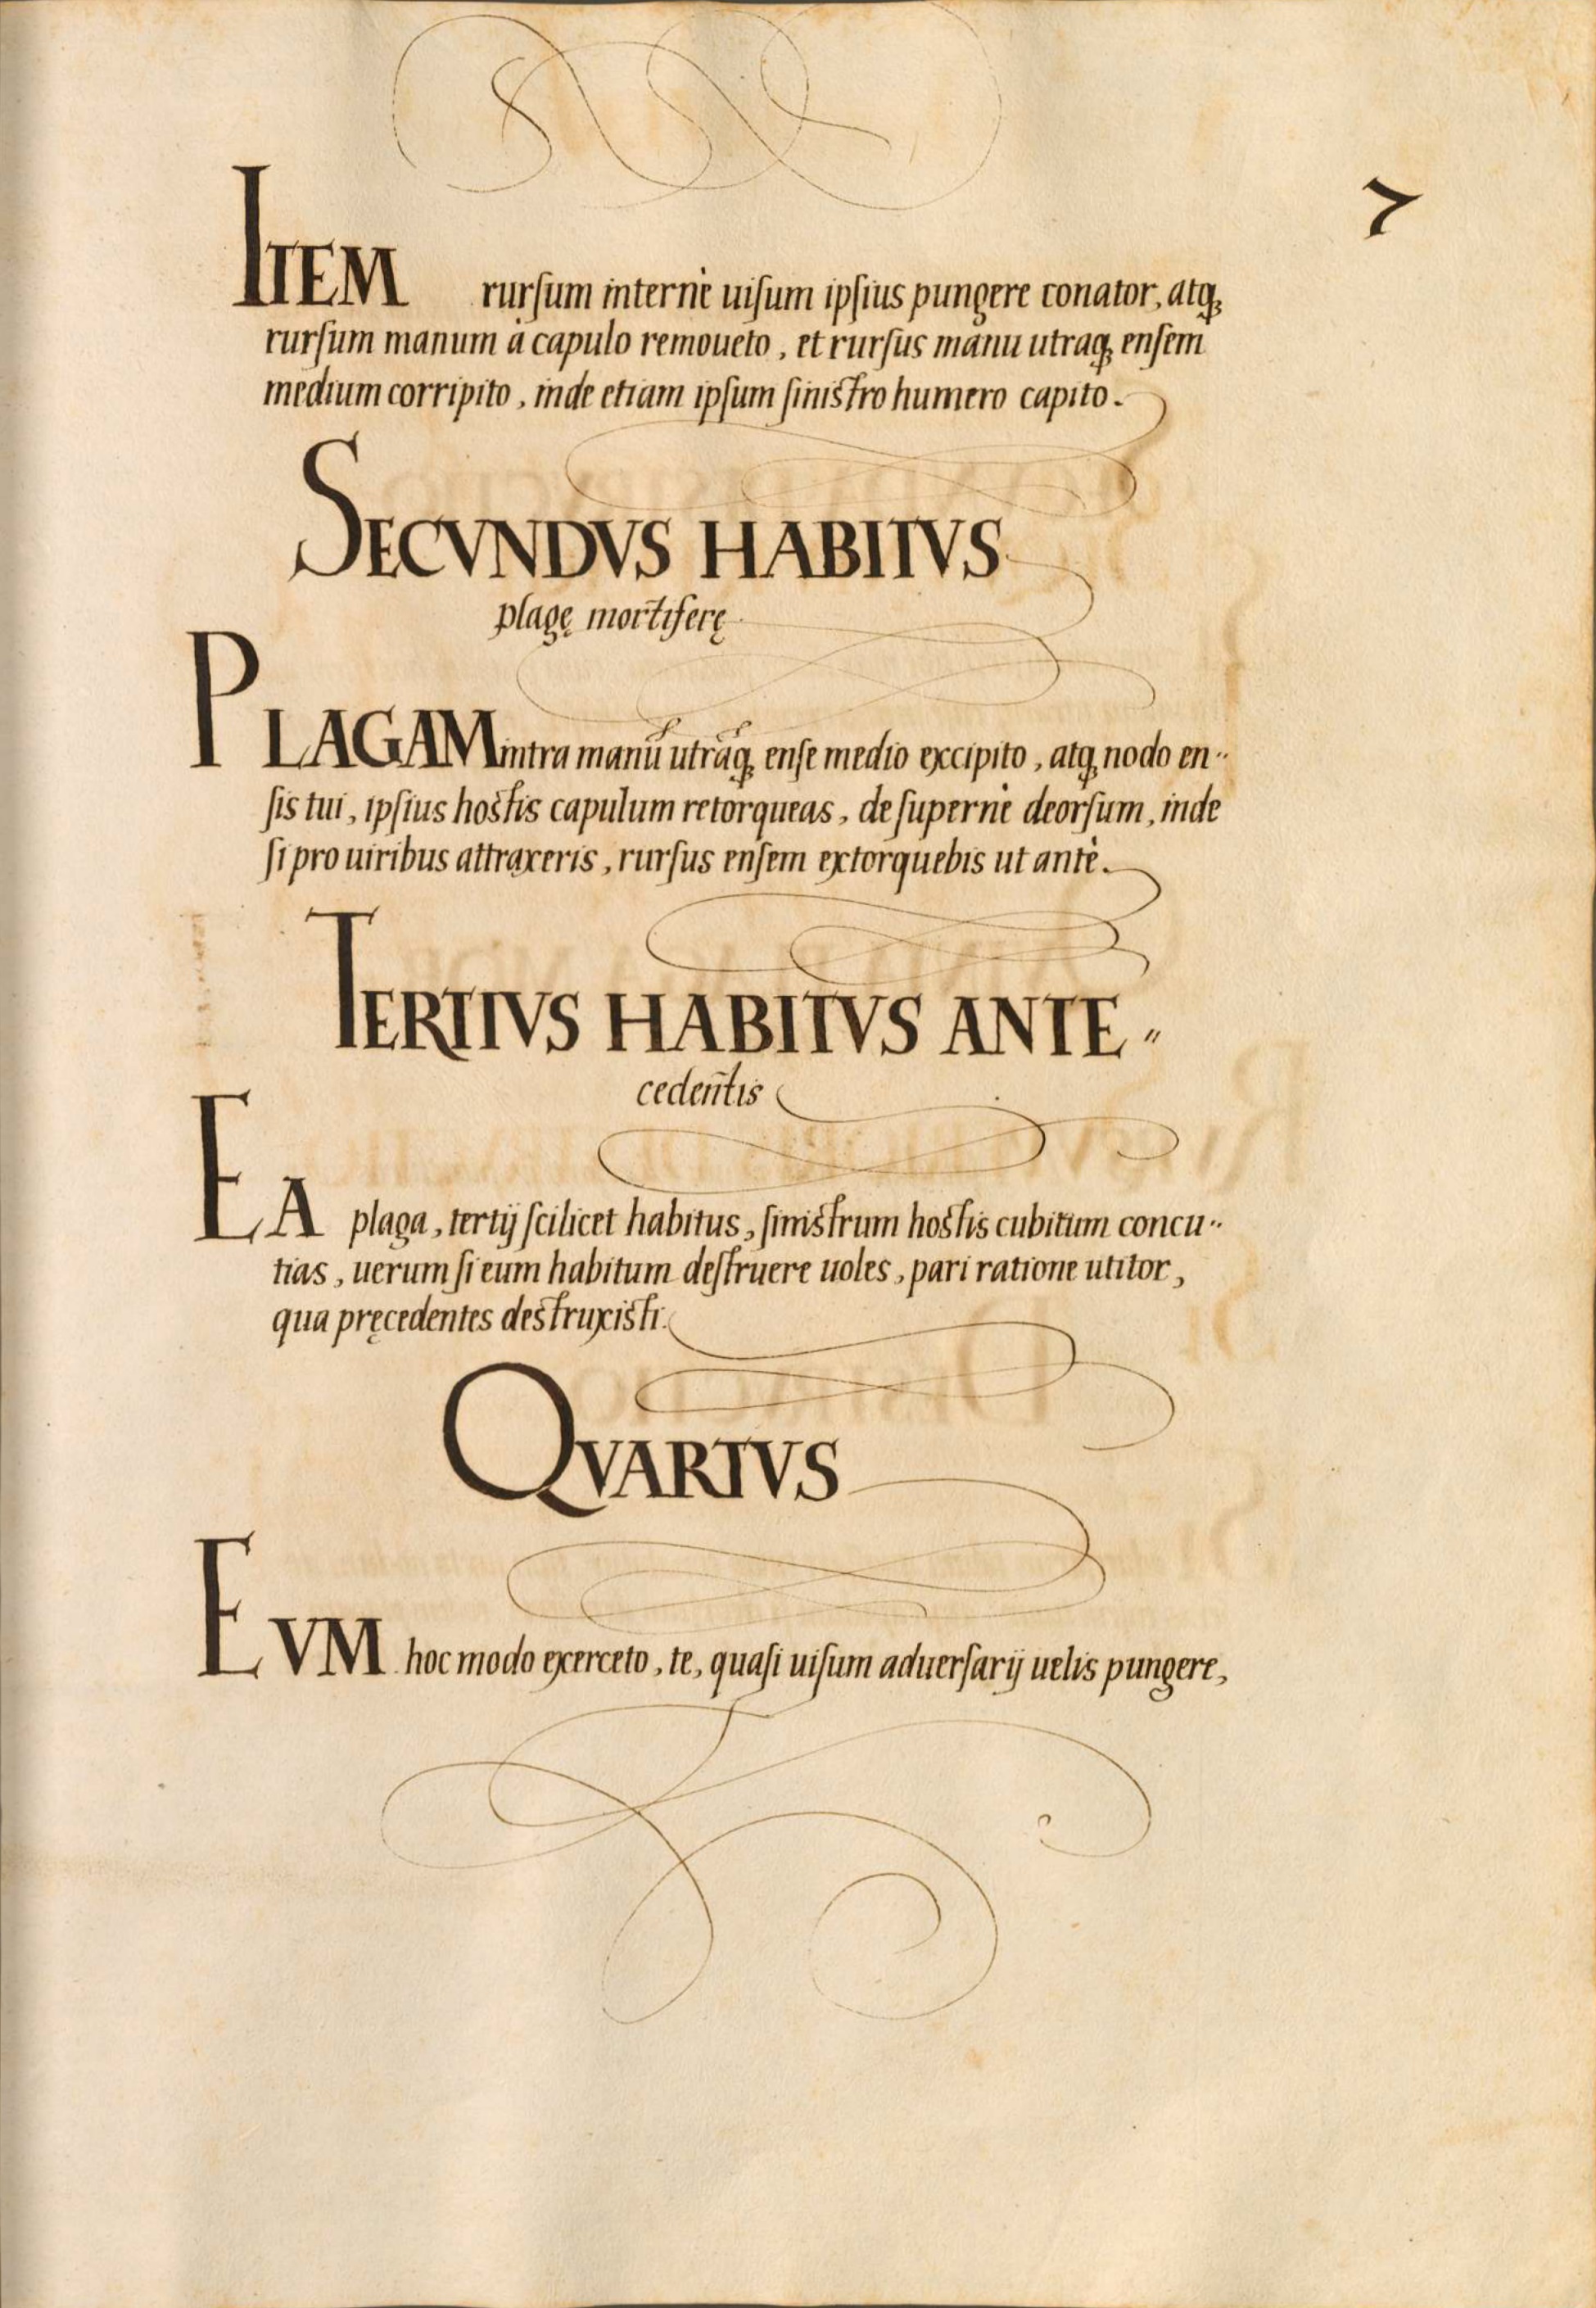 7
ITEM rurſum internè uiſum ipſius pungere conator, atq;
rurſum manum à capulo remoueto, et rurſus manu utraq; enſem
medium corripito, inde etiam ipſum ſiniſtro humero capito.
SECVNDVS HABITVS
plagę mortiferę
PLAGAM intra manũ utraq; enſe medio excipito, atq; nodo en-
ſis tui, ipſius hoſtis capulum retorqueas, de ſupernè deorſum, inde
ſi pro uiribus attraxeris, rurſus enſem extorquebis ut antè.
TERTIVS HABITVS ANTE-
cedentis
EA plaga, tertij ſcilicet habitus, ſiniſtrum hoſtis cubitum concu-
tias, uerum ſi eum habitum deſtruere uoles, pari ratione utitor,
qua pręcedentes deſtruxiſti.
QVARTVS
EVM hoc modo exerceto, te, quaſi uiſum aduerſarij uelis pungere,